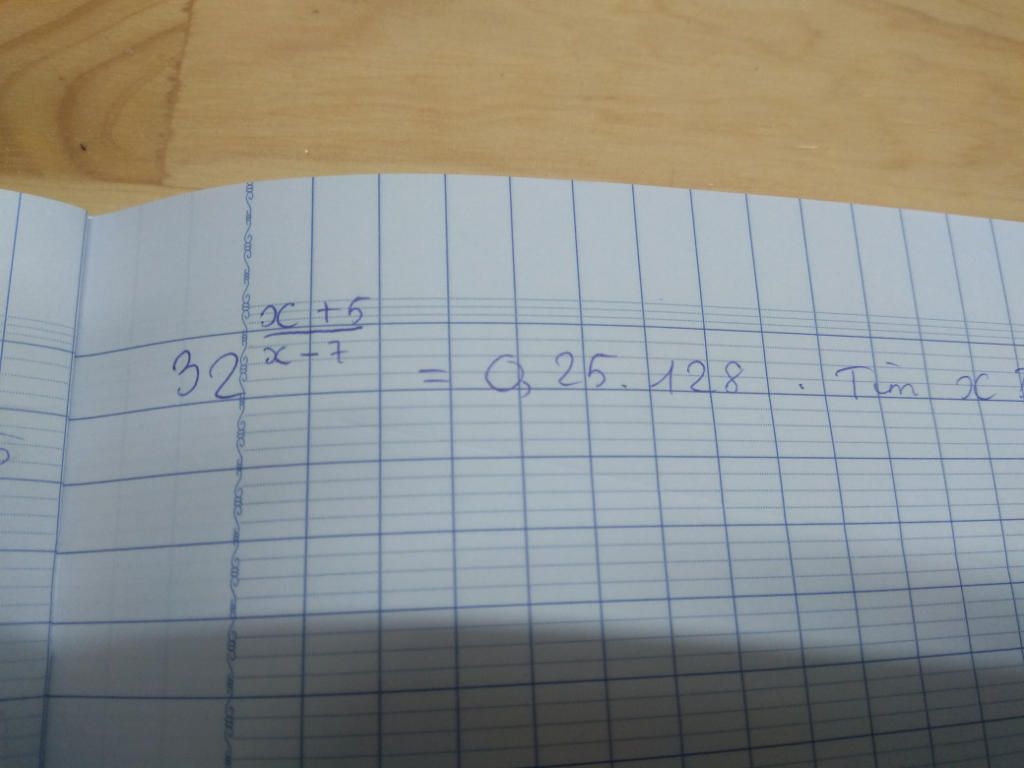 32^{\frac{x+5}{x-7}} = 0,25.128 . Tìm x